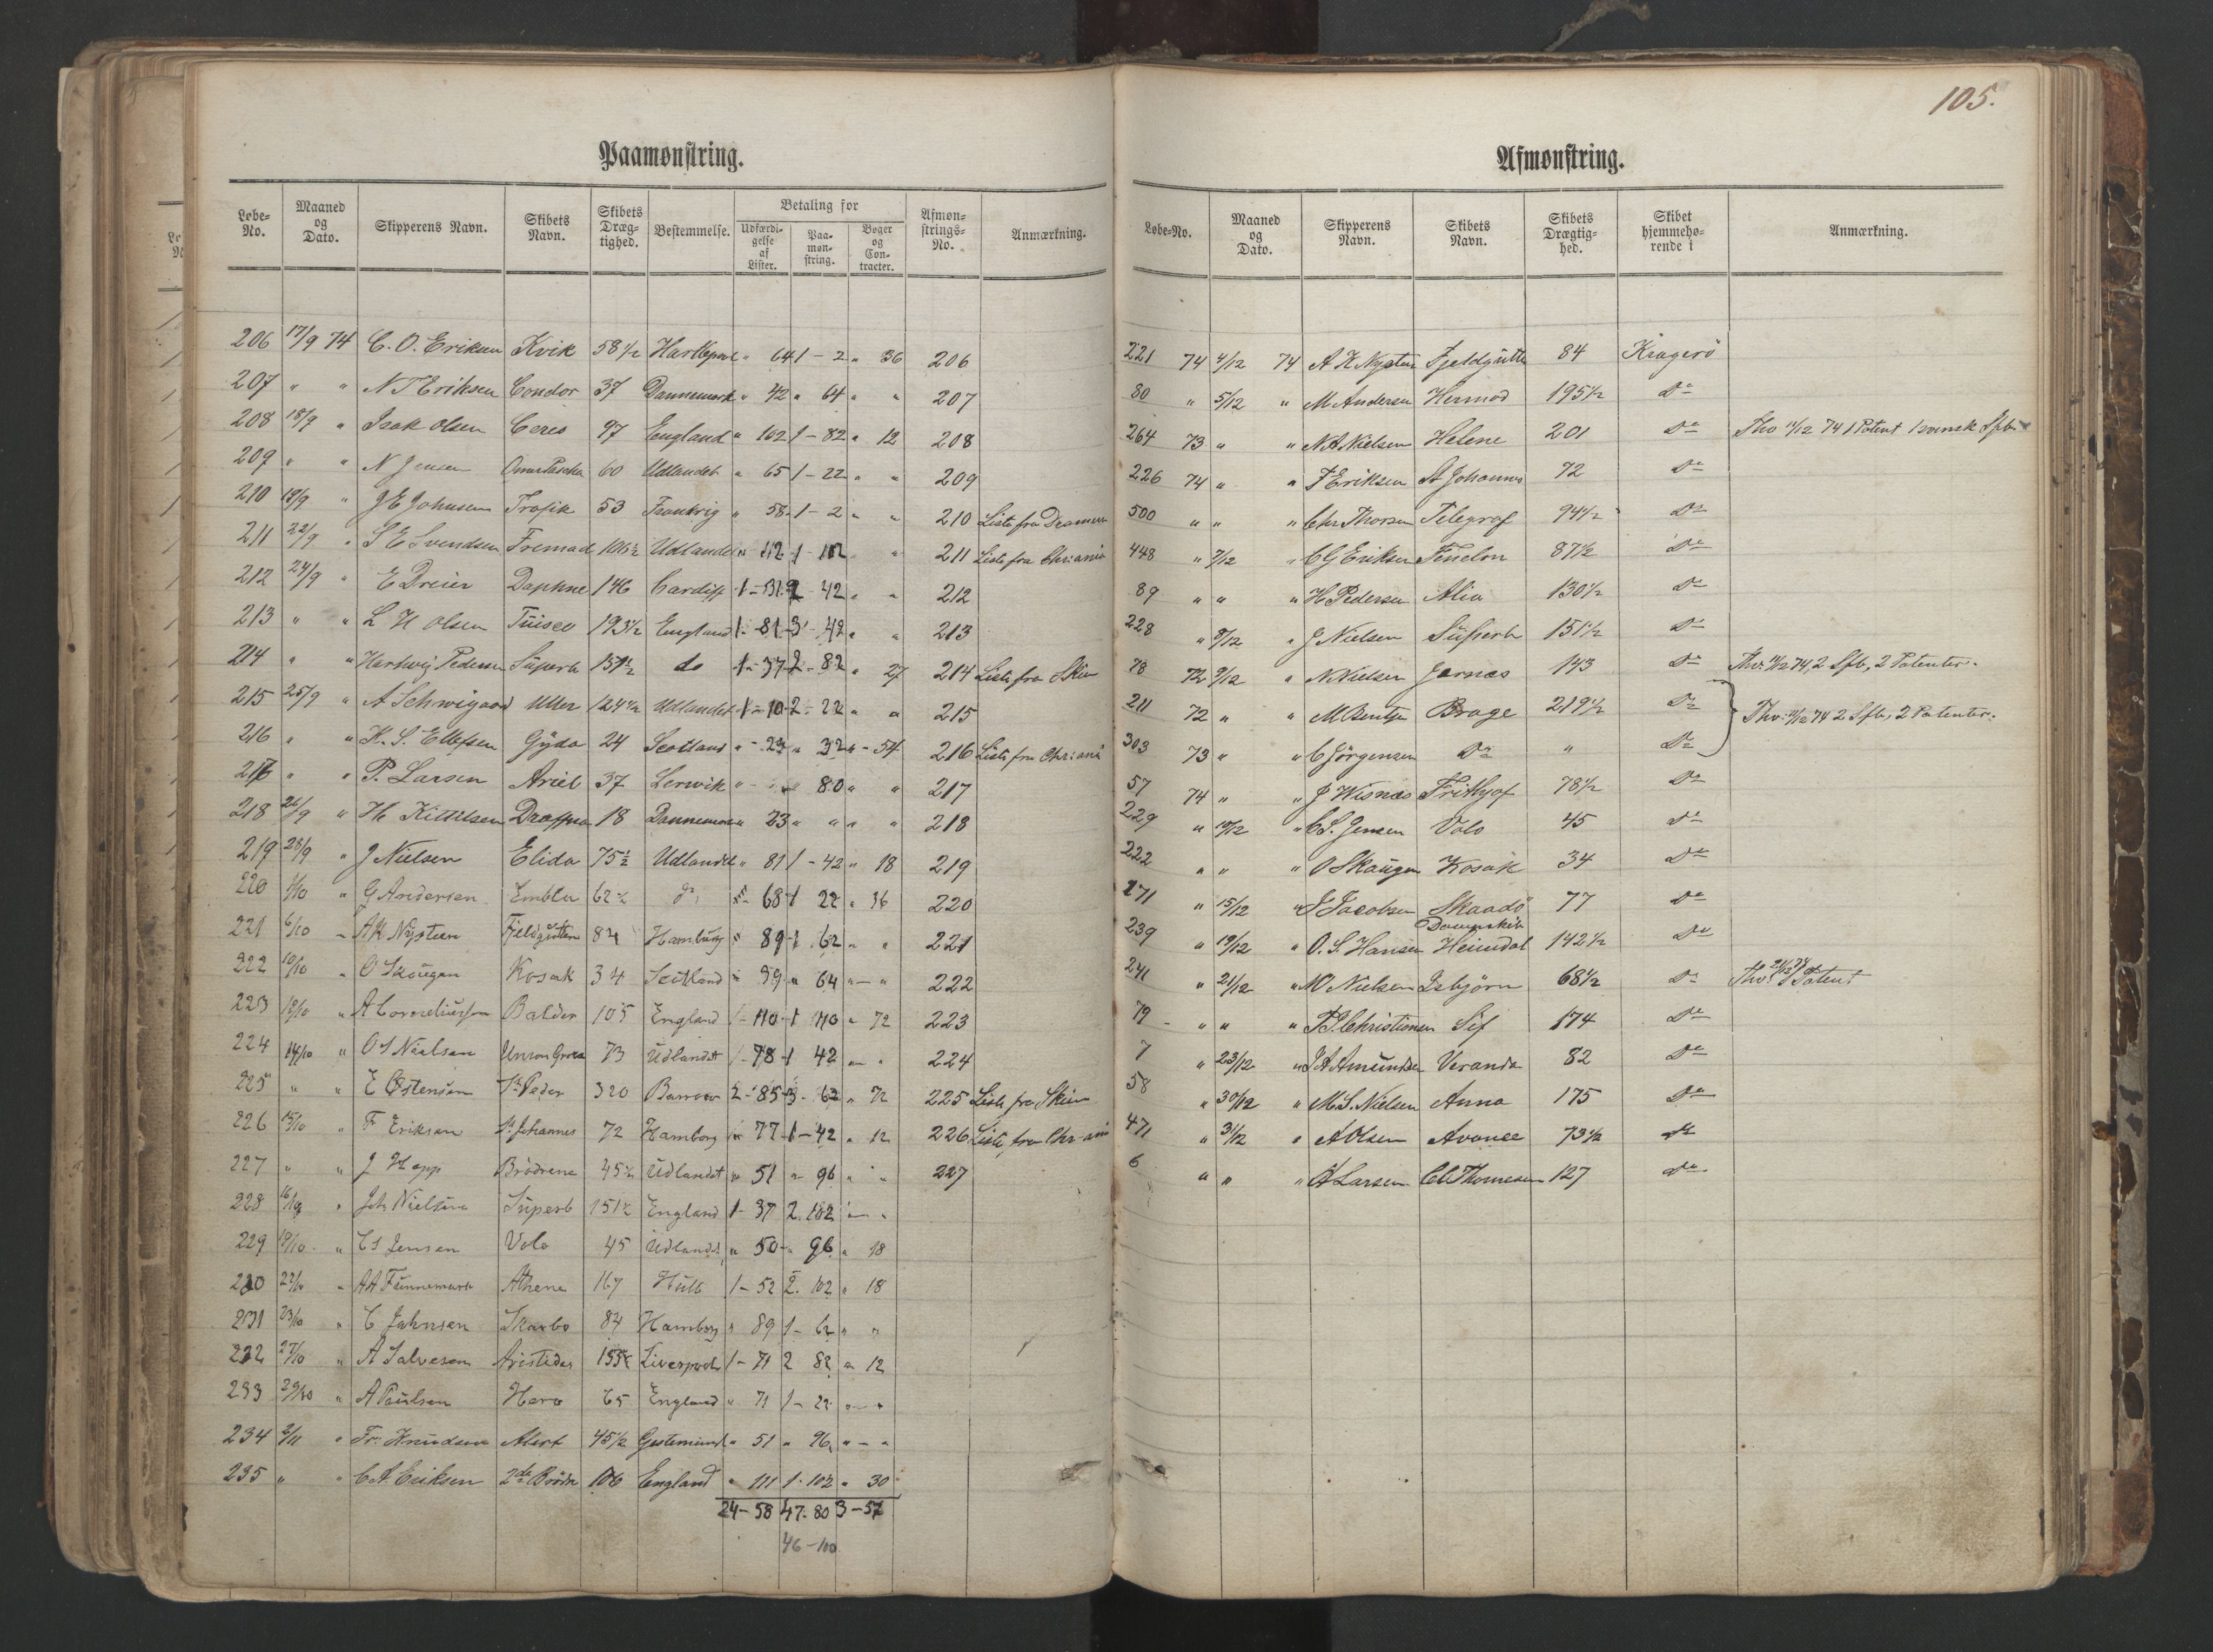 105.
Paamønstring.
Løbe-No. Maaned og Dato. Skipperens Navn. Skibets Navn. Skibets Dræg-tighed. Bestemmelse. Betaling for Udfærdi-gelse af Lister. Paa-møn-string. Bøger og Con-tracter. Afmøn-strings-No. Anmærkning.
206 17/9 74 C. O. Eriksen Kvik 58 1/2 Hartlepool " 64 1 - 2 " 36 206
207 " " N T Eriksen Condor 37 Dannemark " 42 " 64 " " 207
208 18/9 " Isak Olsen Ceres 97 England " 102 1 - 82 " 12 208
209 " " N Jensen Omer Pascha 60 Udlandet " 65 1 - 22 " " 209
210 19/9 " J E Johnsen Trafik 53 " 58 1 - 2 " " 210 Liste fra Drammen
211 22/9 " S E Svendsen Fremad 106 1/2 Udlandet " 112 1 - 102 " 211 Liste fra Chr:ania
212 24/9 " E Dreier Daphne 146 Cardiff 1 - 31 2 42 " " 212
213 " " L H Olsen Tuisco 193 1/2 England 1 - 81 3 - 42 " " 213
214 " " Hartvig Pedersen Superb 151 1/2 do 1 - 37 2 - 82 " 27 214 Liste fra Skien
215 25/9 " A Schwigaard Uller 124 1/2 Udlandet 1 - 10 2 - 22 " " 215
216 " " K. S. Ellefsen Gyda 24 Scotland " - 23 " 32 " - 54 216 Liste fra Chr:ania
217 " " P. Larsen Ariel 37 Lerwik " - 80 " " 217
218 26/9 " H Kittelsen 18 Dannemark " 23 " " " " 218
219 28/9 " J Nielsen Elida 75 1/2 Udlandet " 81 1 - 42 " 18 219
220 1/10 " G Andersen Embla 62 1/2 do " 68 1 22 " 36 220
221 6/10 " A K Nysteen Fjeldgutten 84 Hamburg " 89 1 62 " " 221
222 10/10 " O Skougen Kosak 34 Scotland " 39 " 64 " - " 222
223 12/10 " A Corneliussen Balder 105 England 1 - 110 1 110 " 72 223
224 14/10 " O S Nielsen Union Grove 73 Udlandet 1 - 78 1 42 " " 224
225 " " E Østensen St Peder 320 Barrow 2 - 85 3 - 62 " 72 225 Liste fra Skien
226 15/10 " F Eriksen St Johannes 72 Hamborg " 77 1 - 42 " 12 226 Liste fra Chr-ania
227 " " J Hopp Brødrene 45 1/2 Udlandet " 51 " 96 " " 227
228 16/10 " Joh Nielsen Superb 151 1/2 England 1 - 37 2. 102 " - "
229 19/10 " C S Jensen Volo 45 Udlandet " 50 " 96 " 18
230 22/10 " A A Funnemark Athene 167 Hull 1 - 52 2. 102 " 18
231 23/10 " C Johnsen Skarbo 84 Hamborg " 89 1 - 62 " "
232 27/10 " A Salvesen Aristides 155 1/2 Liverpool 1 - 71 2 82 " 12
233 29/10 " A Paulsen Hero 65 England " 71 1 - 22 " - "
234 2/11 " Fr. Knudsen Alert 45 1/2 Gestemünde " 51 " 96 " - "
235 " " C A. Eriksen 2de Brødre 106 England " 111 1 - 102 " 30
24 - 58 47 - 80 3 - 57
46 - 100
Afmønstring.
Løbe-No. Maaned og Dato. Skipperens Navn. Skibets Navn. Skibets Drægtig-hed. Skibet hjemmehø-rende i Anmærkning.
221 74 4/12 74 A K Nysten Fjeldgutten 84 Kragerö
80 " 5/12 " M Andersen Hermod 195 1/2 Do
264 73 " " N A Nielsen Helene 201 Do Thv 11/12 74 1 Patent 1 svensk Sfb
226 74 " " F Eriksen St Johannes 72 Do
500 " " " Chr Thorsen Telegraf 94 1/2 Do
448 " 7/12 " C G Eriksen Fenelon 87 1/2 Do
89 " " " H Pedersen Alia 130 1/2 Do
228 " 8/12 " J Nielsen Superb 151 1/2 Do
78 72 9/12 " N Nielsen Jarnæs 143 Do Thv. 11/12 74, 2 Sfb, 2 Patenter.
211 72 " " M Bentzen Brage 219 1/2 Do Thv. 11/12 74 2 Sfb, 2 Patenter.
303 73 " " C Jörgensen Do " Do
57 74 " " J Wisnæs Frithjof 78 1/2 Do
229 " 10/12 " C S. Jensen Volo 45 Do
222 " " " O Skougen Kosak 34 Do
271 " 15/12 " J Jacobsen Skaadö 77 Do
239 " 19/12 " O. S. Hansen Dampskib Heimdal 142 1/2 Do
241 " 21/12 " M Nielsen Isbjörn 68 1/2 Do Thv. 24/12 74 1 Patent
79 " " " T S. Christiansen Sif 174 Do
7 " 23/12 " J A Amundsen Veranda 82 Do
58 " 30/12 " M. S. Nielsen Anna 175 Do
471 " 31/12 " A Olsen Avance 73 1/2 Do
6 " " " A Larsen Cl Thomesen 127 Do